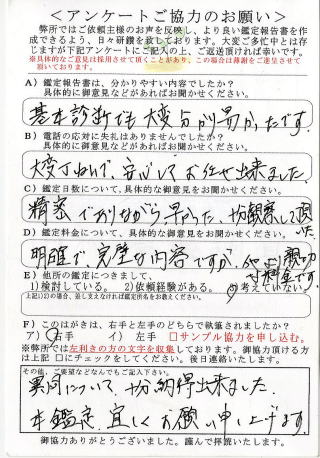 ＜アンケートご協力のお願い＞
弊所ではご依頼主様のお声を反映し、より良い鑑定報告書を作
成できるよう、日々研鑽を致しております。大変ご多忙中とは存
じますが下記アンケートにご記入の上、ご返送頂ければ幸いです。
※具体的なご意見は採用させて頂くことがあり、この場合は薄謝をご進呈させて
頂いております。
A）鑑定報告書は、分かりやすい内容でしたか？
具体的に御意見などがあればお聞かせください。
基本診断でも大変分かり易かったです。
B）電話の応対に失礼はありませんでしたか？
具体的に御意見などがあればお聞かせください。
大変丁ねいで、安心してお任せ出来ました。
C）鑑定日数について、具体的な御意見をお聞かせください。
精密でありながら早かった、十分観察して頂いた。
D）鑑定料金について、具体的な御意見をお聞かせください。
明確で、完璧な内容ですが、他より親切
料金です。
E）他所の鑑定につきまして、
1)検討している。 2)依頼経験がある。 3)考えていない
上記1)2)の場合、差し支えなければ鑑定所名をお教えください。
F）このはがきは、右手と左手のどちらで執筆されましたか？
ア）右手 イ）左手 □サンプル協力を申し込む。
※弊所では左利きの方の文字を収集しております。御協力頂ける方
は上記□にチェックをしてください。後日連絡いたします。
その他、ご要望などなんでもご記入下さい。
異同について、十分納得出来ました。
本鑑定、宜しくお願い申し上げます。
御協力ありがとうございました。謹んで拝読いたします。